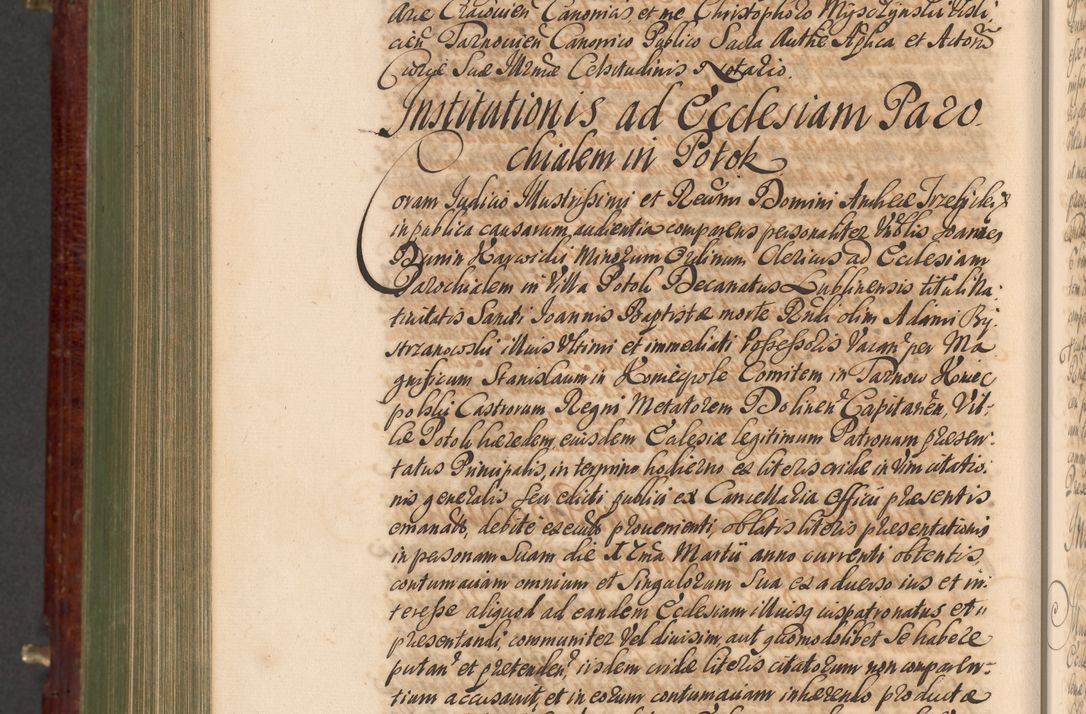 Aræ Cracovien Canonicis et me Christophoro Mysczynski Visli,
cien Tarnovien Canonico Publico Sacra Authe Aplica et Actorū
Curiæ Suæ Illrmæ Celsitudinis Notario.
Institutionis ad Ecclesiam Paro
chialem in Potok
Coram Judicio Illustrissimi et Reūmi Domini Andreæ Trzebicki
in publica causarum audientia comparens personaliter Vblis Joannes
Damin Karwicki Minorum Ordinum Clericus ad Ecclesiam
Parochialem in Villa Potok Decanatus Lublinensis tituli Na:
tivitatis Sancti Joannis Baptistæ morte Rndi olim Adami By,
strzanowski illius Vltimi et immediati Possessoris Vacan per Ma
gnificum Stanislaum in Koniecpole Comitem in Tarnow Koniec
polski Castrorum Regni Metatorem Dolinen Capitaneu, Vil-
læ Potok hæredem, eiusdem Ecclesiæ legitimum Patronum præsen-
tatus Principalis, in termino hodierno ex literis cridæ in Vim citatio,
nis generalis seu edicti publici ex Cancellaria Officii præsentis
emanatis, debite executis provenienti, oblatis literis præsentationis
in personam Suam die Xma Martii anno currenti obtentis,
contumaciam omnium et Singulorum Sua ex adverso ius et in-
teresse aliquod ad eandem Ecclesiam illiusq iuspatronatus et
præsentandi, communiter Vel divisim, aut quomodolibet se habere
putan et prætenden, iisdem cridæ literis citatorum non comparen-
tium accusavit, et in eorum contumaciam inhærendo productæ